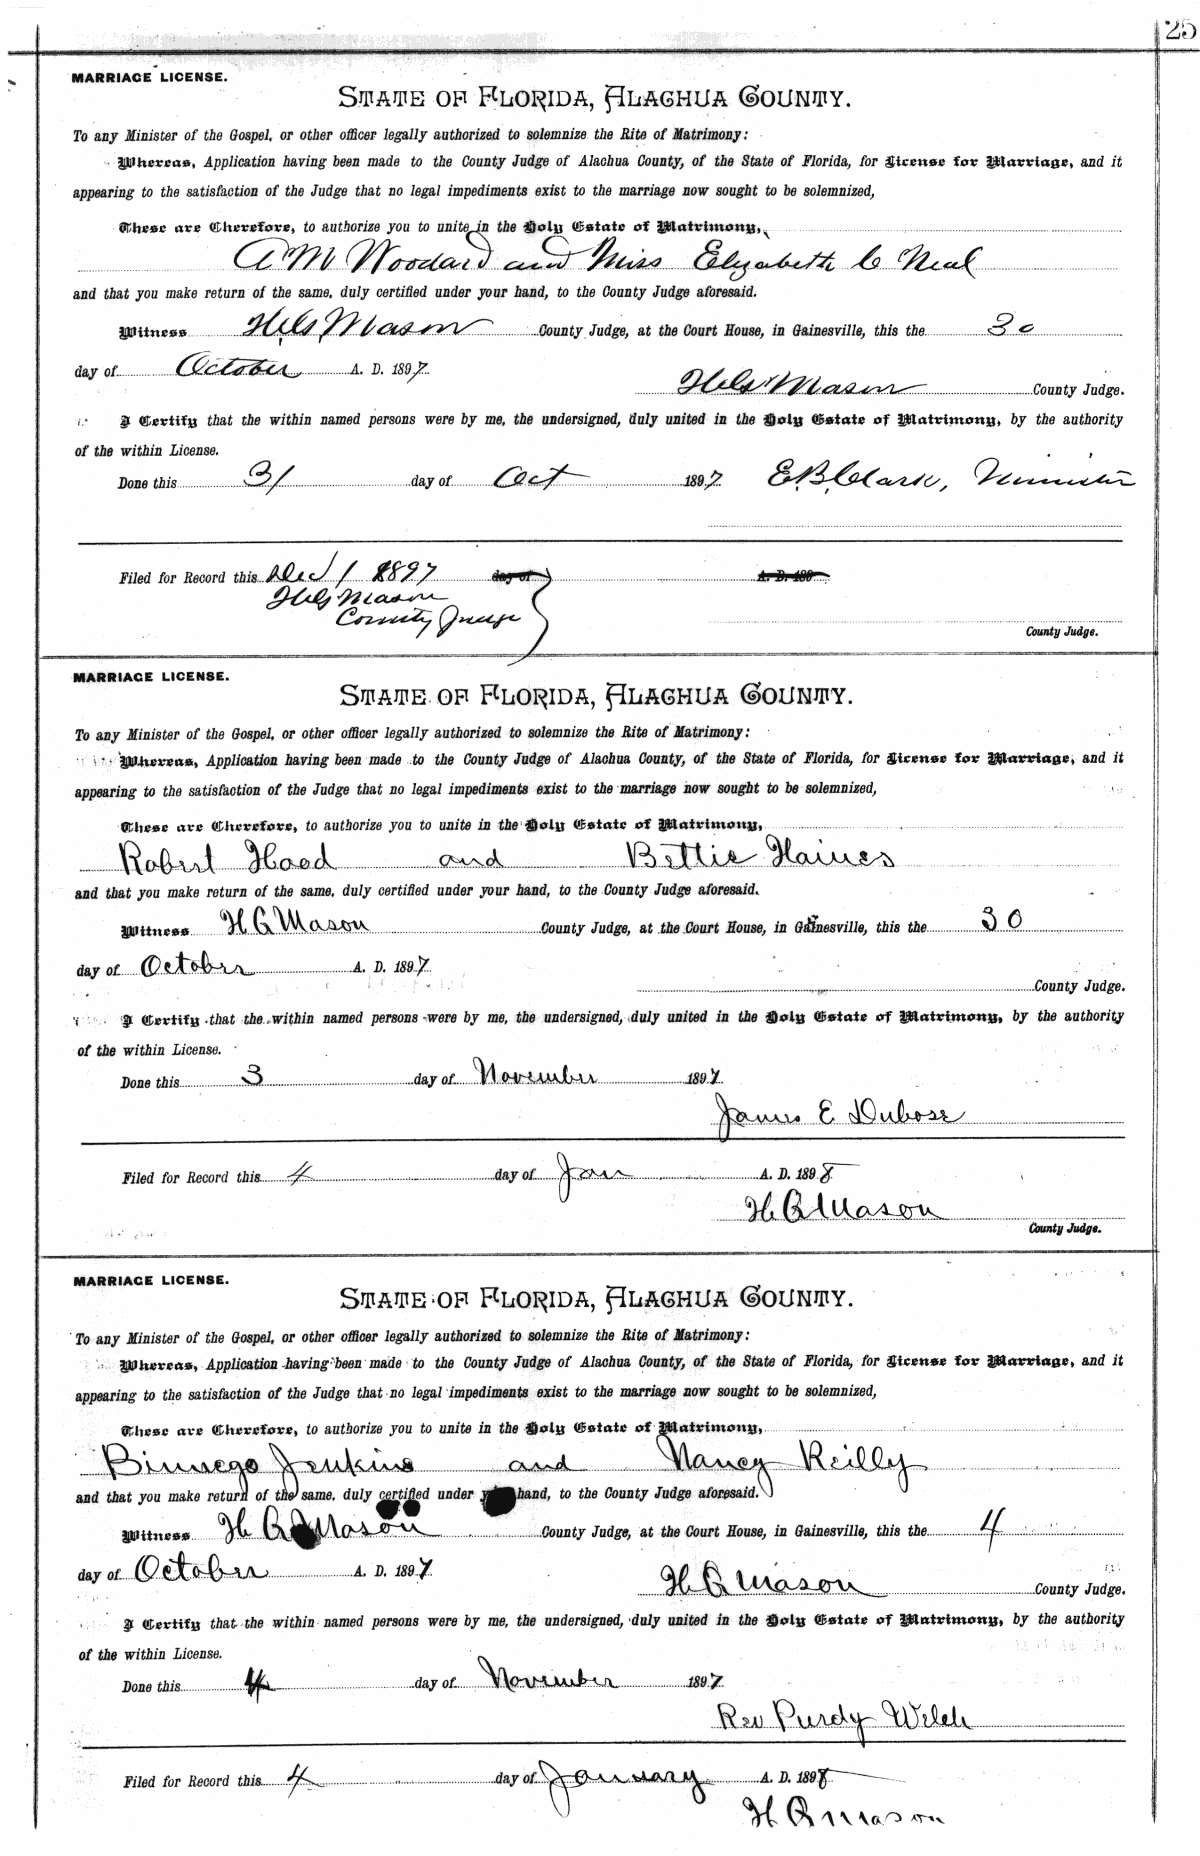 25
MARRIAGE LICENSE.
STATE OF FLORIDA, ALACHUA COUNTY.
To any Minister of the Gospel, or other officer legally authorized to solemnize the Rite of Matrimony:
Whereas, Application having been made to the County Judge of Alachua County, of the State of Florida, for License for Marriage, and it
appearing to the satisfaction of the Judge that no legal impediments exist to the marriage now sought to be solemnized,
These are Therefore, to authorize you to unite in the Holy Estate of Matrimony,
A M Woodard and Miss Elizabeth C Neal
and that you make return of the same, duly certified under your hand, to the County Judge aforesaid.
Witness H. G. Mason County Judge, at the Court House, in Gainesville, this the 30
day of October A. D. 1897
H. G. Mason County Judge.
I Certify that the within named persons were by me, the undersigned, duly united in the Holy Estate of Matrimony, by the authority
of the within License.
Done this 31 day of Oct 1897 E. B. Clark, Minister
Filed for Record this Dec 1 1897 day of A. D. 189
H G Mason
County Judge
County Judge.
MARRIAGE LICENSE.
STATE OF FLORIDA, ALACHUA COUNTY.
To any Minister of the Gospel, or other officer legally authorized to solemnize the Rite of Matrimony:
Whereas, Application having been made to the County Judge of Alachua County, of the State of Florida, for License for Marriage, and it
appearing to the satisfaction of the Judge that no legal impediments exist to the marriage now sought to be solemnized,
These are Therefore, to authorize you to unite in the Holy Estate of Matrimony,
Robert Hood and Bettie Haines
and that you make return of the same, duly certified under your hand, to the County Judge aforesaid.
Witness H G Mason County Judge, at the Court House, in Gainesville, this the 30
day of October A. D. 1897
County Judge.
I Certify that the within named persons were by me, the undersigned, duly united in the Holy Estate of Matrimony, by the authority
of the within License.
Done this 3 day of November 1897
James E Dubose
Filed for Record this 4 day of Jan A. D. 1898
H G Mason
County Judge.
MARRIAGE LICENSE.
STATE OF FLORIDA, ALACHUA COUNTY.
To any Minister of the Gospel, or other officer legally authorized to solemnize the Rite of Matrimony:
Whereas, Application having been made to the County Judge of Alachua County, of the State of Florida, for License for Marriage, and it
appearing to the satisfaction of the Judge that no legal impediments exist to the marriage now sought to be solemnized,
These are Therefore, to authorize you to unite in the Holy Estate of Matrimony,
Binnego Jenkins and Nancy Reilly
and that you make return of the same, duly certified under your hand, to the County Judge aforesaid.
Witness H G Mason County Judge, at the Court House, in Gainesville, this the 4
day of October A. D. 1897
H G Mason County Judge.
I Certify that the within named persons were by me, the undersigned, duly united in the Holy Estate of Matrimony, by the authority
of the within License.
Done this 4 day of November 1897
Rev Purdy Welch
Filed for Record this 4 day of January A. D. 1898
H G Mason